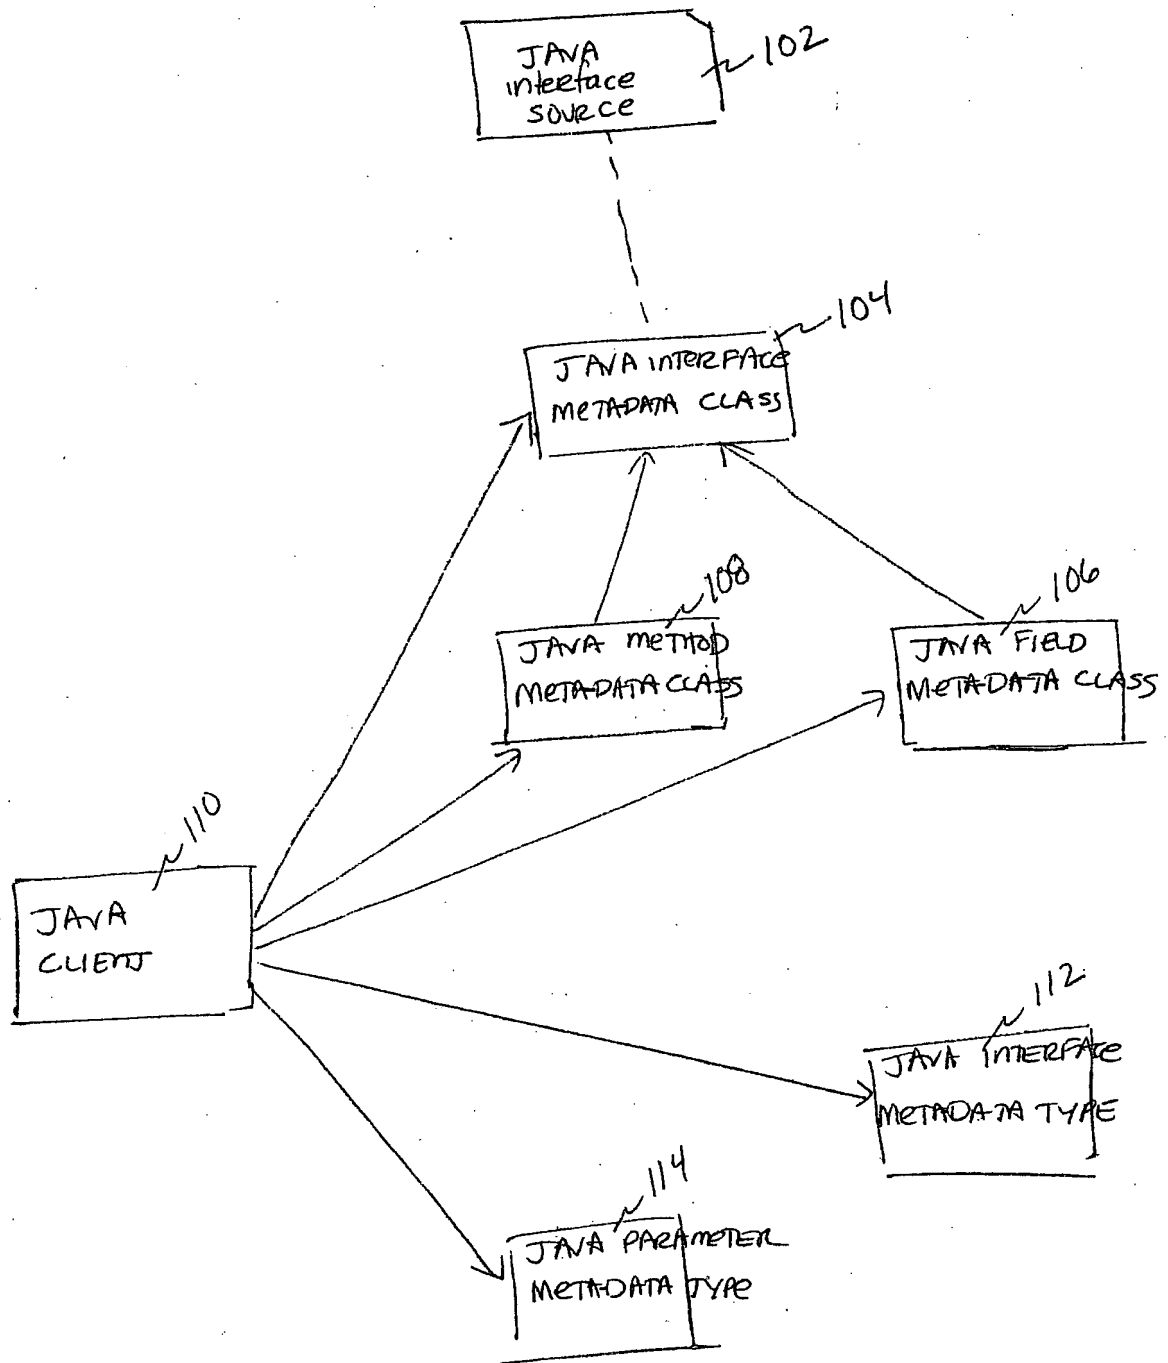 JAVA
interface
SOURCE
102
104
JAVA INTERFACE
METADATA CLASS
108
JAVA METHOD
METADATA CLASS
106
JAVA FIELD
METADATA CLASS
110
JAVA
CLIENT
112
JAVA INTERFACE
METADATA TYPE
114
JAVA PARAMETER
METADATA TYPE